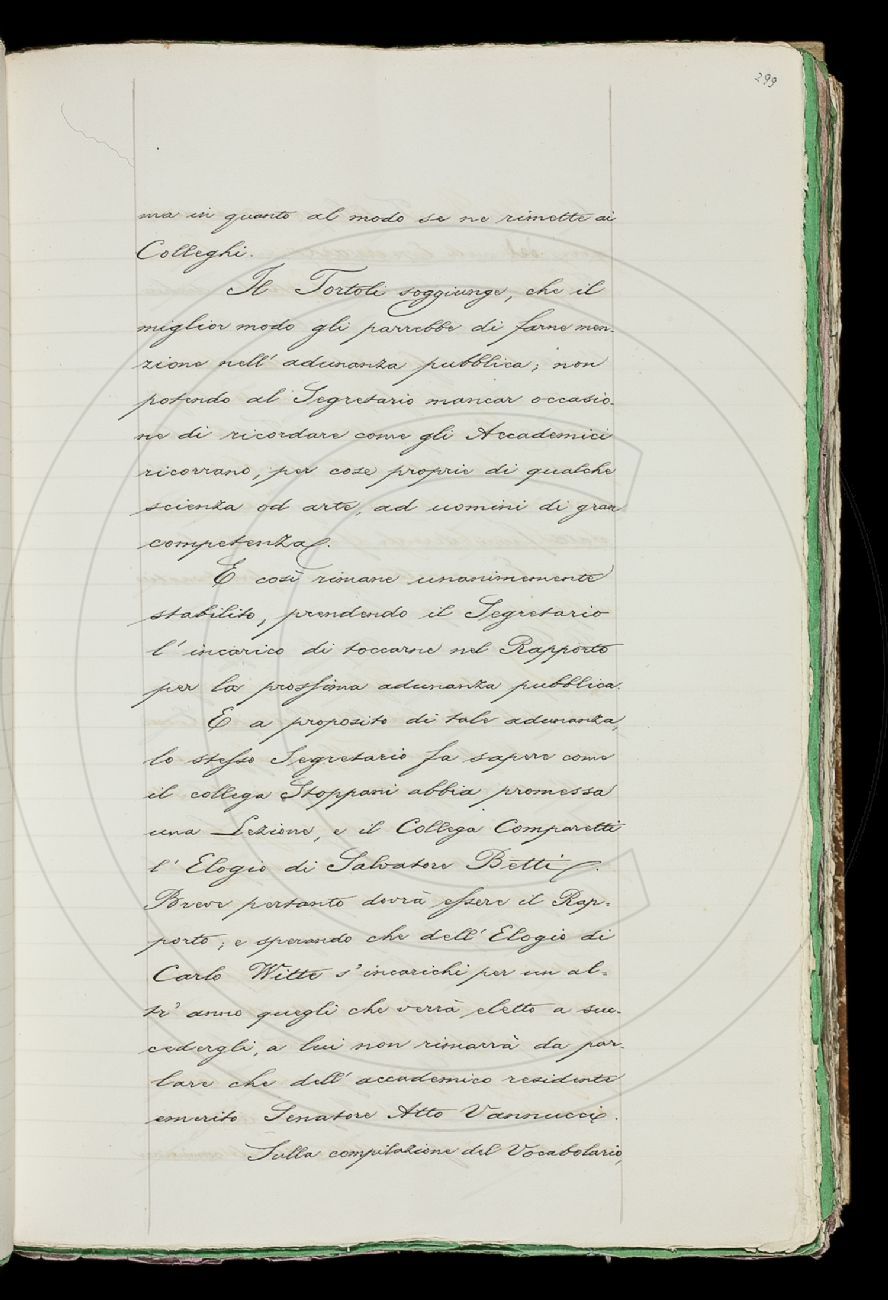 299
ma in quanto al modo se ne rimette ai
Colleghi.
Il Tortoli soggiunge, che il
miglior modo gli parrebbe di farne men
zione nell' adunanza pubblica; non
potendo al Segretario mancar occasio-
ne di ricordare come gli Accademici
ricorrano, per cose proprie di qualche
scienza od arte, ad uomini di gran
competenza.
E così rimane unanimemente
stabilito, prendendo il Segretario
l' incarico di toccarne nel Rapporto
per la prossima adunanza pubblica.
E a proposito di tale adunanza,
lo stesso Segretario fa sapere come
il collega Stoppani abbia promessa
una Lezione, e il Collega Comparetti
l' Elogio di Salvatore Betti.
Breve pertanto dovrà essere il Rap-
porto; e sperando che dell' Elogio di
Carlo Witte s' incarichi per un al-
tr' anno quegli che verrà eletto a suc-
cedergli, a lui non rimarrà da par-
lare che dell' accademico residente
emerito Senatore Atto Vannucci.
Sulla compilazione del Vocabolario,